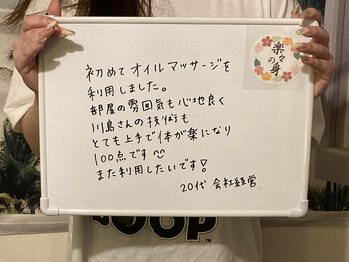 初めてオイルマッサージを
利用しました。
部屋の雰囲気も心地良く
川島さんの技術も
とても上手で体が楽になり
100点です
また利用したいです!
20代 会社経営
楽々の身